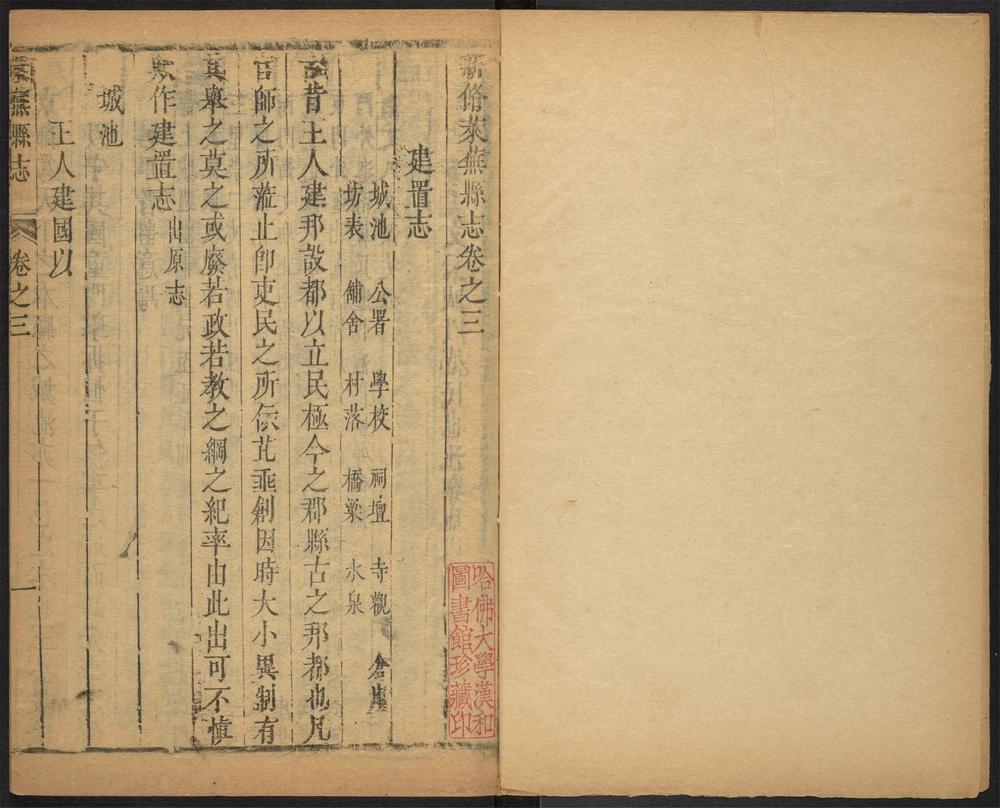 新修萊蕪縣志卷之三
建置志
城池 公署 學校 祠壇 寺觀 倉庫
坊表 舖舍 村落 橋梁 水泉
昔王人建邦設都以立民極今之郡縣古之邦都也凡
官師之所蒞止卽吏民之所依芘亟創因時大小異制有
其舉之莫之或廢若政若教之綱之紀率由此出可不慎
歟作建置志 出原志
城池
王人建國以
萊蕪縣志 卷之三 一
哈佛大學漢和
圖書館珍藏印